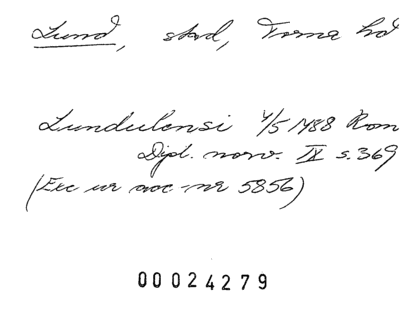 Lund, stad, Torna hd
Lundulensi 4/5 1488 Rom
Dipl. norv. IX s. 369
(Exc ur acc-nr 5856)
00024279